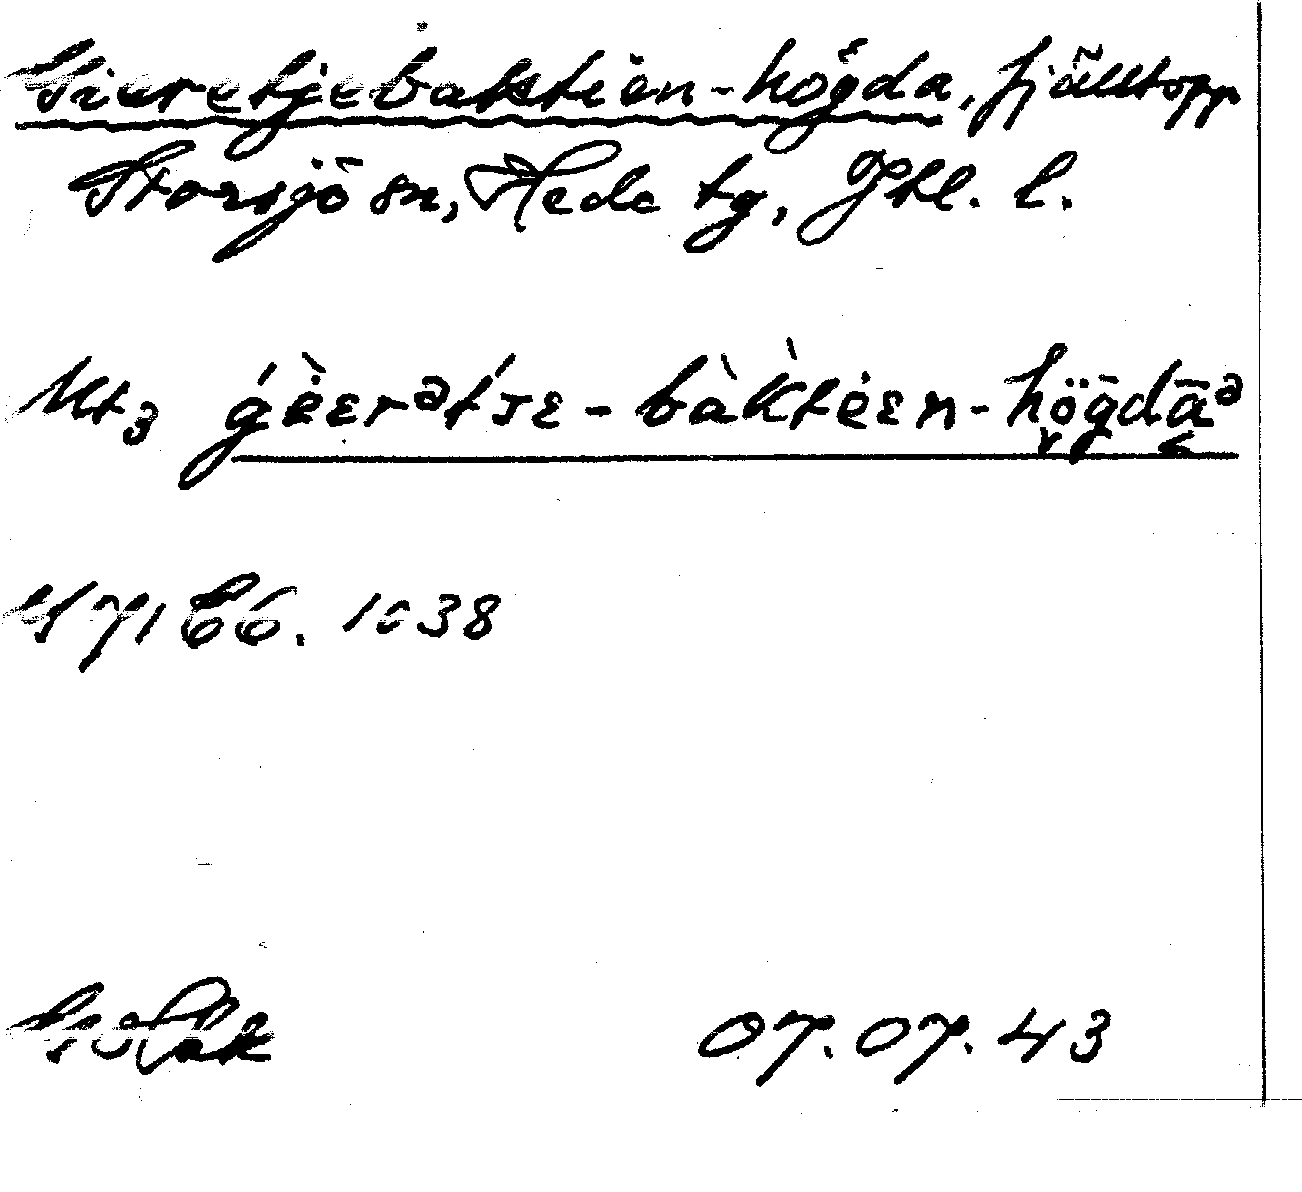 Gieretjebaktien-högda, fjälltopp
Storsjö sn, Hede tg, Jtl. l.
Ut3 gèerətse-bàktèen-högdāə
1038
07.07.43